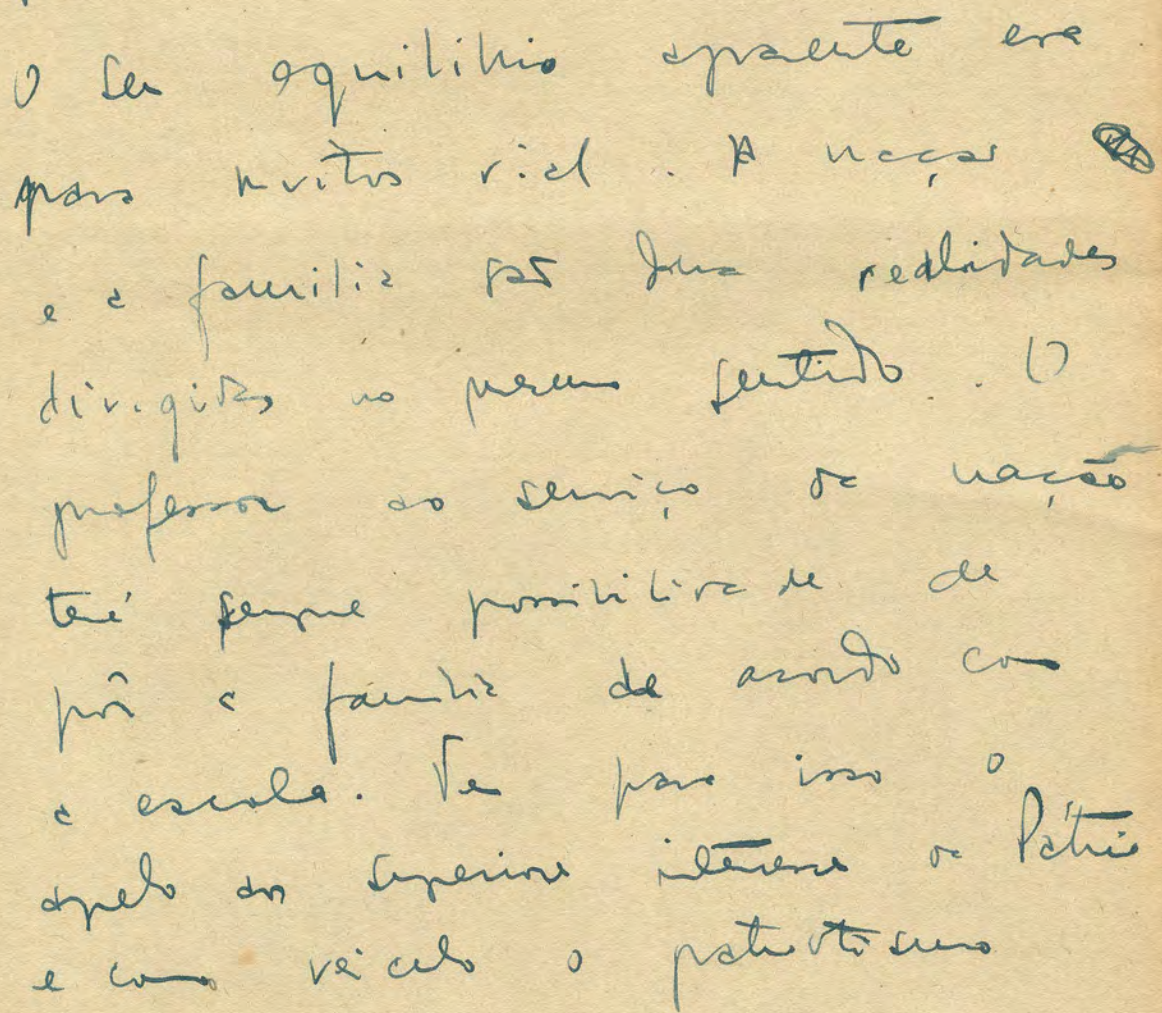 O seu equilibrio aparente era
para muitos rial. A nação
e a familia são duas realidades
dirigidas no mesmo sentido. O
professor ao serviço da nação
terá sempre possibilidade de
pôr a familia de acordo com
a escola. Tem para isso o
apelo aos superiores interesses da Pátria
e como veiculo o patriotismo